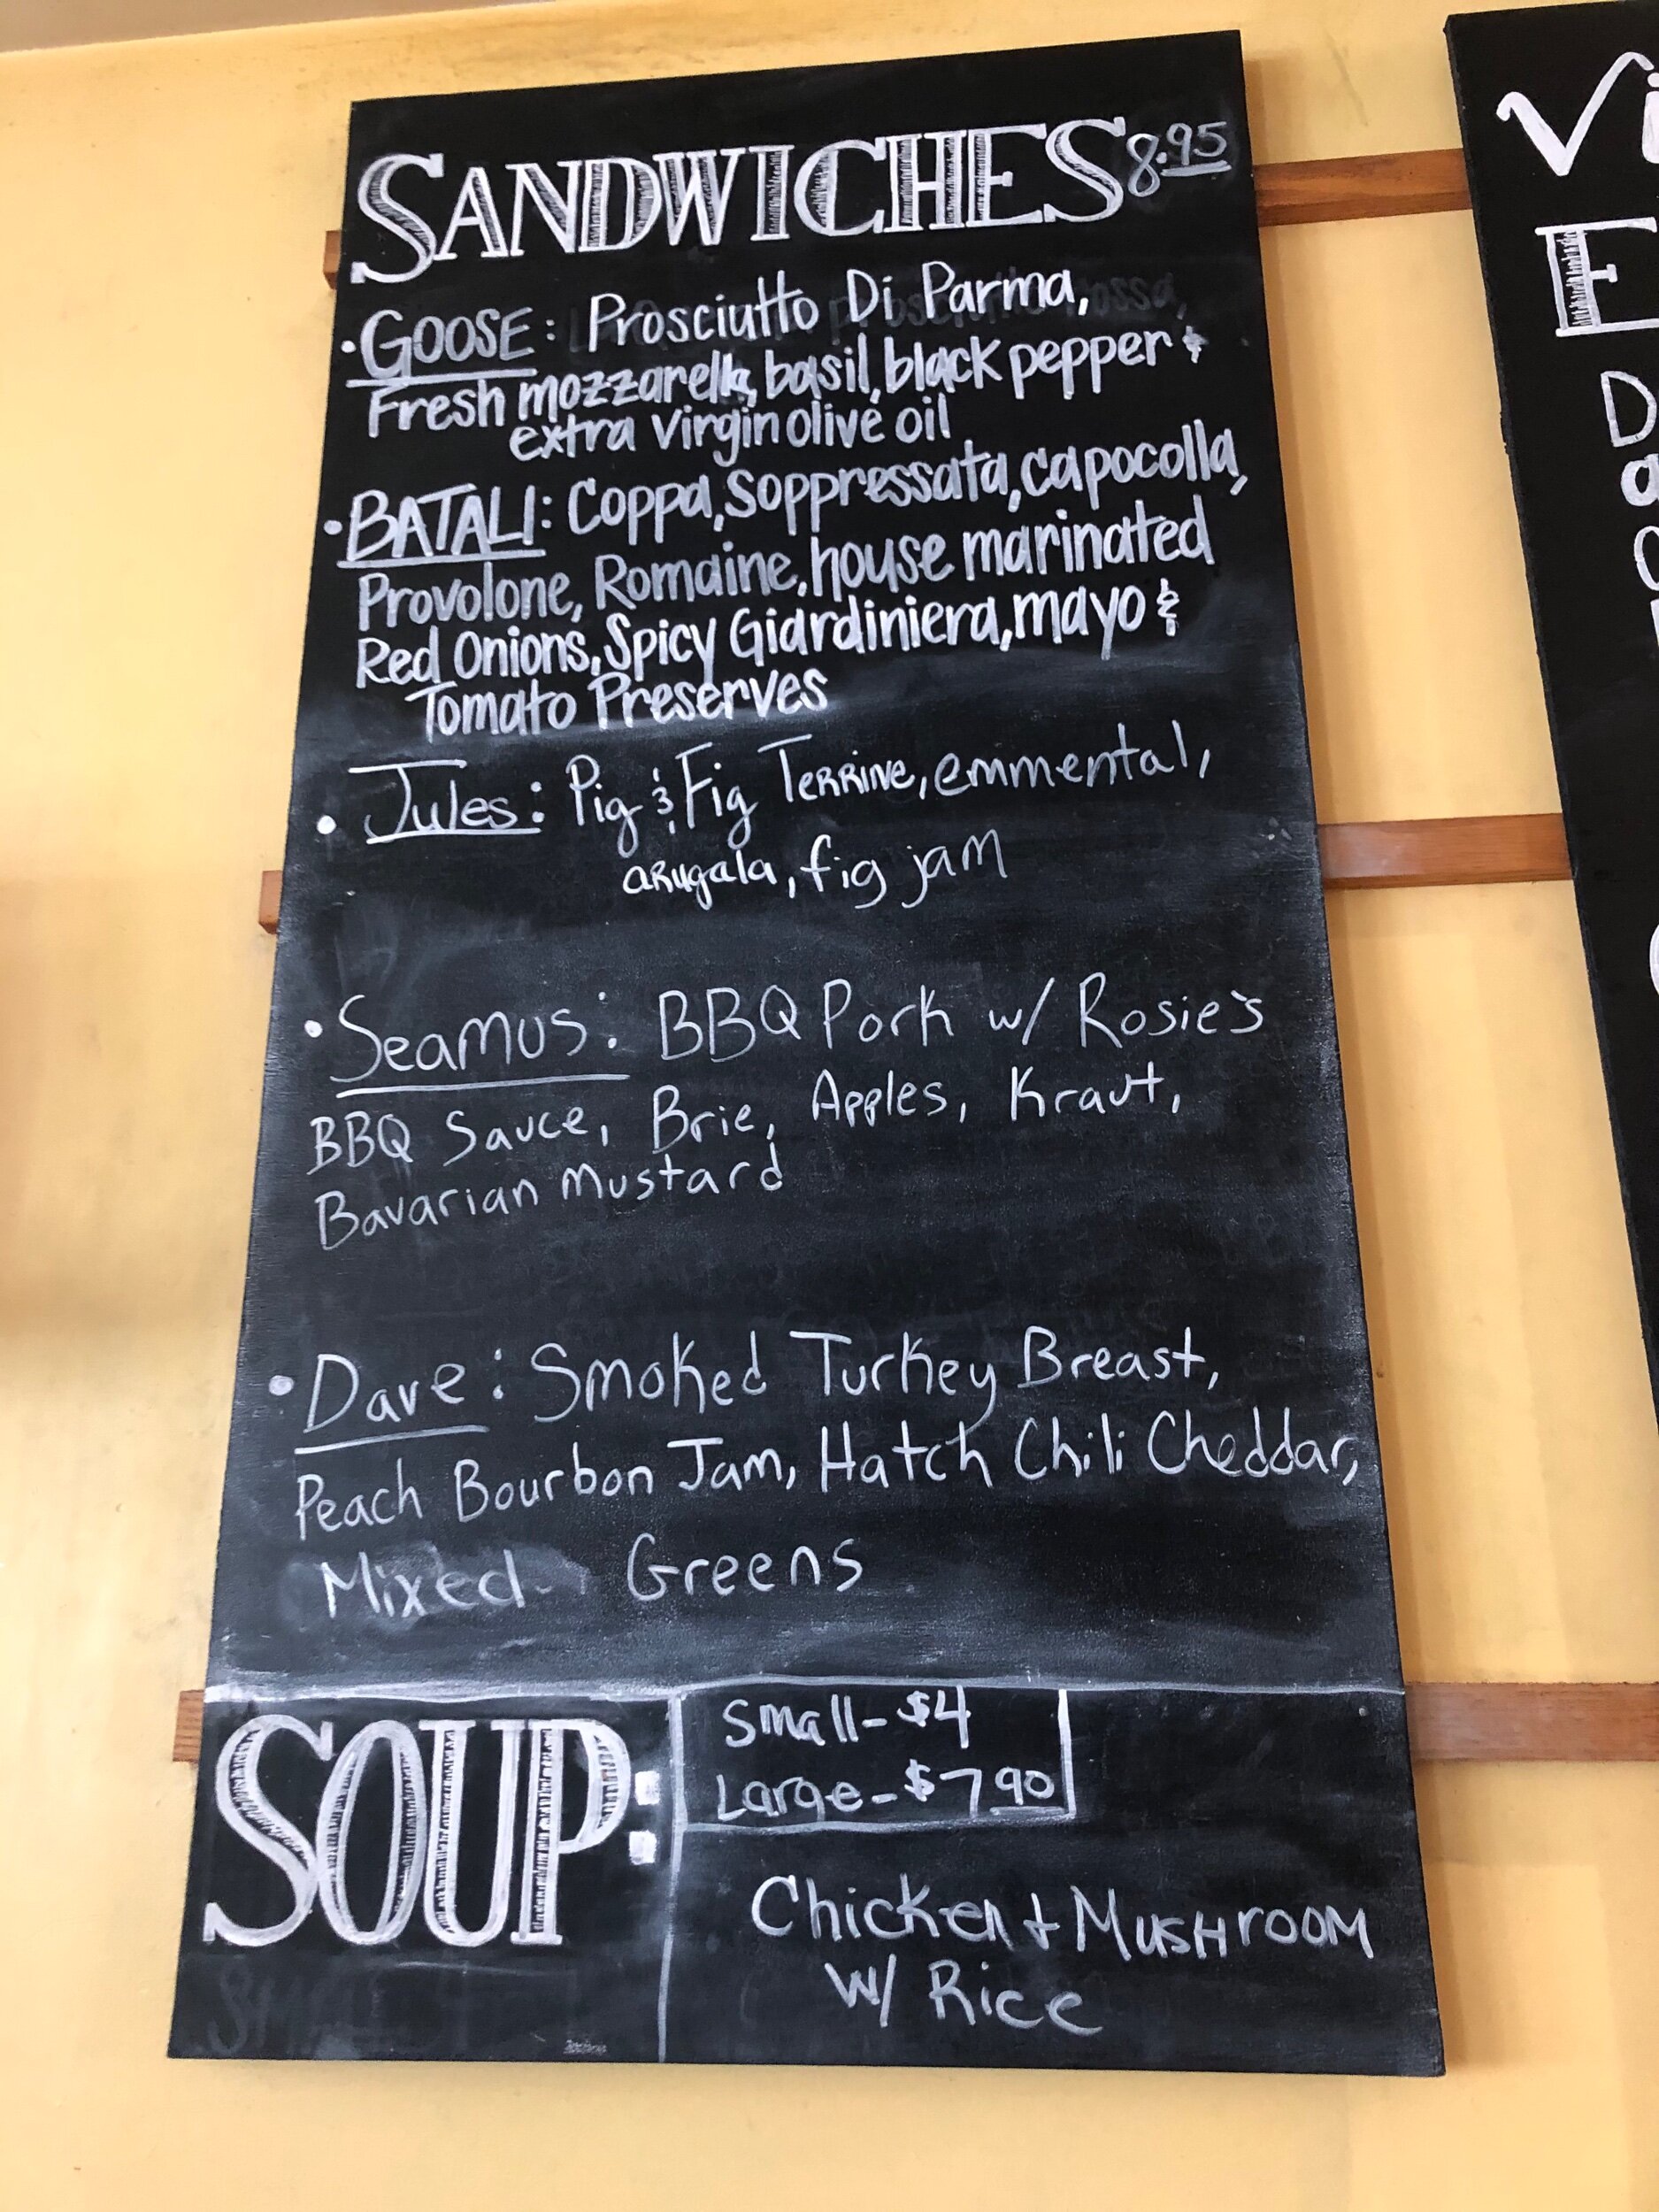 SANDWICHES 8.95
• GOOSE: Prosciutto Di Parma,
Fresh mozzarella, basil, black pepper &
extra virgin olive oil
• BATALI: Coppa, Soppressata, capocolla,
Provolone, Romaine, house marinated
Red Onions, Spicy Giardiniera, mayo &
Tomato Preserves
• Jules: Pig & Fig TERRINE, emmental,
aRugala, fig jam
• Seamus: BBQ Pork w/ Rosie's
BBQ Sauce, Brie, Apples, Kraut,
Bavarian Mustard
• Dave: Smoked Turkey Breast,
Peach Bourbon Jam, Hatch Chili Cheddar,
Mixed Greens
SOUP:
Small - $4
Large - $7 90
Chicken + MUSHROOM
w/ Rice